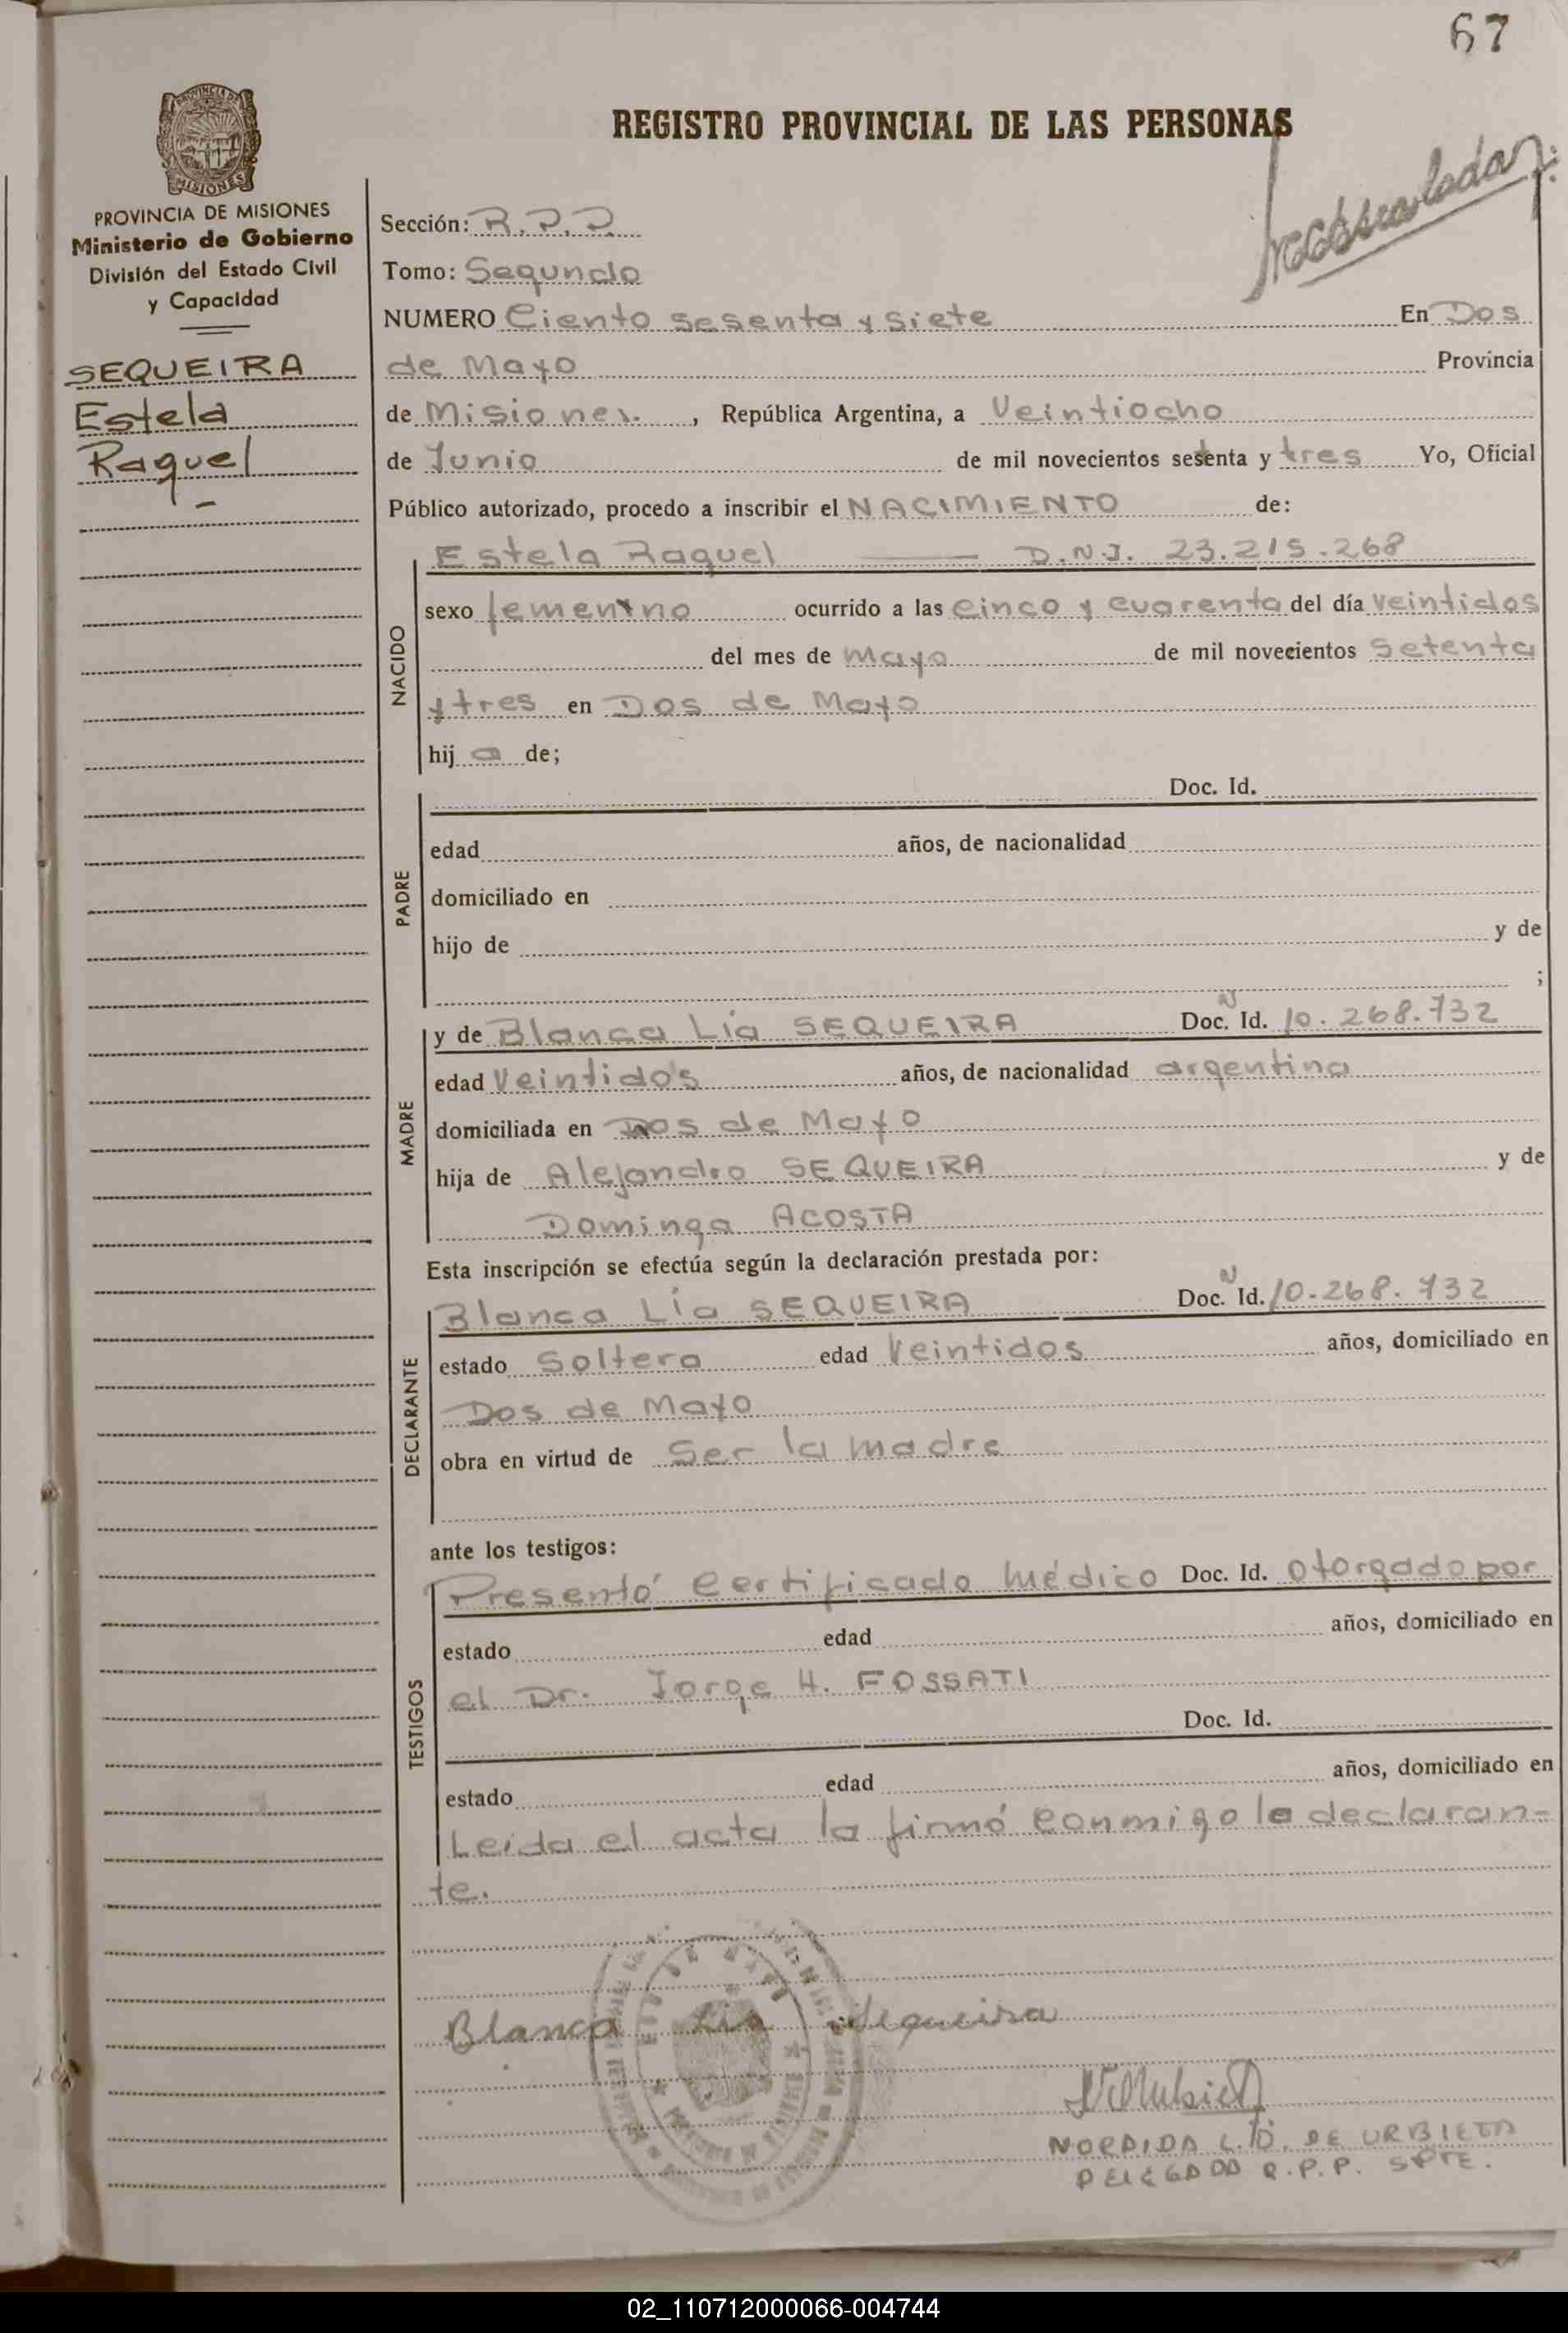 67
REGISTRO PROVINCIAL DE LAS PERSONAS
PROVINCIA DE MISIONES
Ministerio de Gobierno
División del Estado Civil
y Capacidad
SEQUEIRA
Estela
Raquel
Sección: R.P.P.
Tomo: Segundo
NUMERO Ciento sesenta y siete En Dos
de Mayo Provincia
de Misiones. , República Argentina, a Veintiocho
de Junio de mil novecientos setenta y tres Yo, Oficial
Público autorizado, procedo a inscribir el NACIMIENTO de:
NACIDO
Estela Raquel —— D.N.I. 23.215.268
sexo femenino ocurrido a las cinco y cuarenta del día veintidos
del mes de Mayo de mil novecientos setenta
y tres en Dos de Mayo
hij a de;
PADRE
Doc. Id.
edad años, de nacionalidad
domiciliado en
hijo de y de
;
MADRE
y de Blanca Lía SEQUEIRA Doc. N Id. 10.268.732
edad Veintidós años, de nacionalidad argentina
domiciliada en Dos de Mayo
hija de Alejandro SEQUEIRA y de
Dominga ACOSTA
Esta inscripción se efectúa según la declaración prestada por:
DECLARANTE
Blanca Lía SEQUEIRA Doc. N Id. 10.268.732
estado Soltera edad Veintidos años, domiciliado en
Dos de Mayo
obra en virtud de Ser la madre
ante los testigos:
TESTIGOS
Presentó certificado médico Doc. Id. otorgado por
estado edad años, domiciliado en
el Dr. Jorge H. FOSSATI
Doc. Id.
estado edad años, domiciliado en
Leída el acta la firmó conmigo la declaran-
te.
Blanca Lia Sequeira
DE URBIETA
DELEGADO R.P.P. SPTE.
02_110712000066-004744